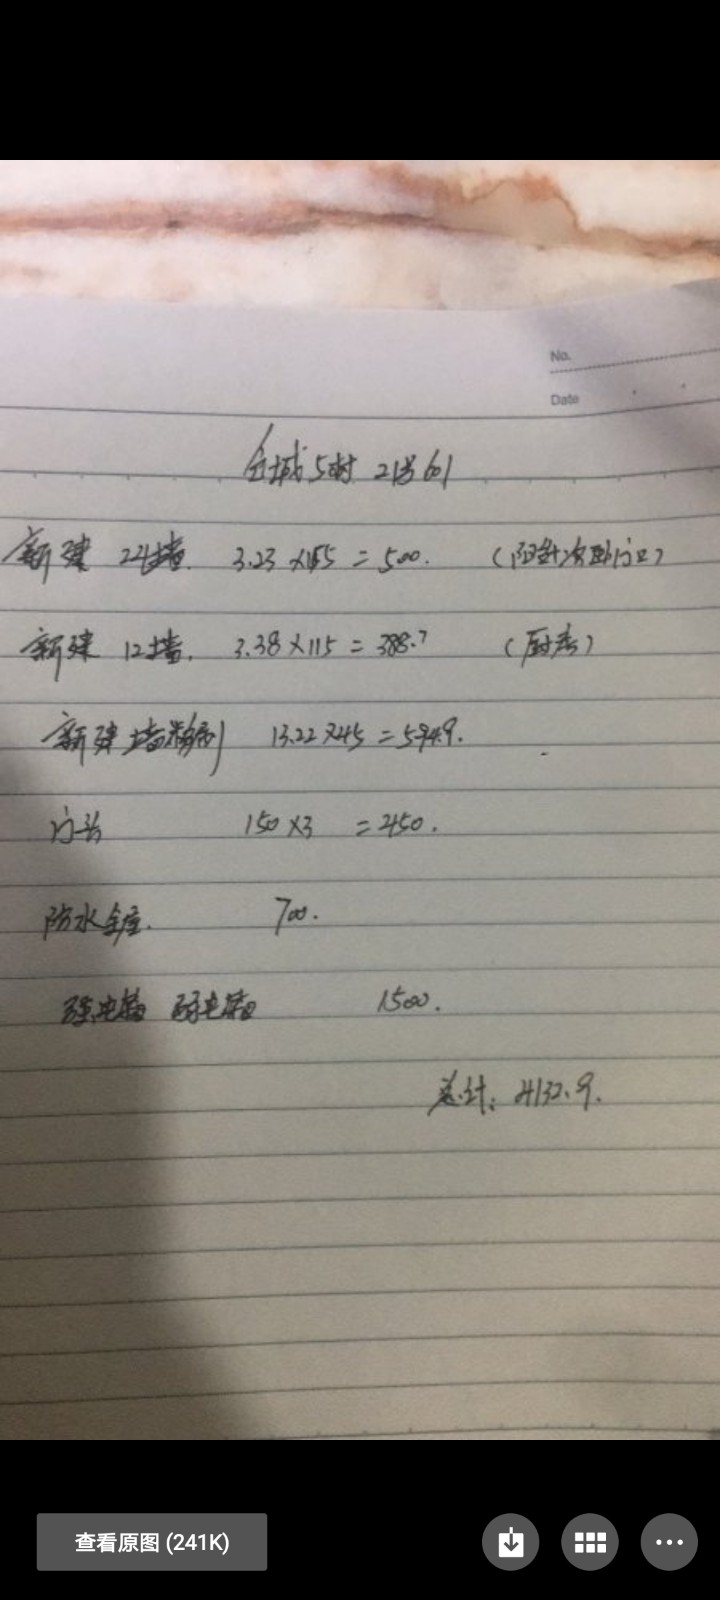 No.
Date
金城5村 21号601
新建 24墙. 3.23×155=500. (阳台次卧门口)
新建 12墙. 3.38×115=388.7 (厨房)
新建墙粉刷 13.22×45=594.9.
门头 150×3 =450.
防水全屋. 700.
强电箱 弱电箱 1500.
总计: 4132.9.
查看原图 (241K)